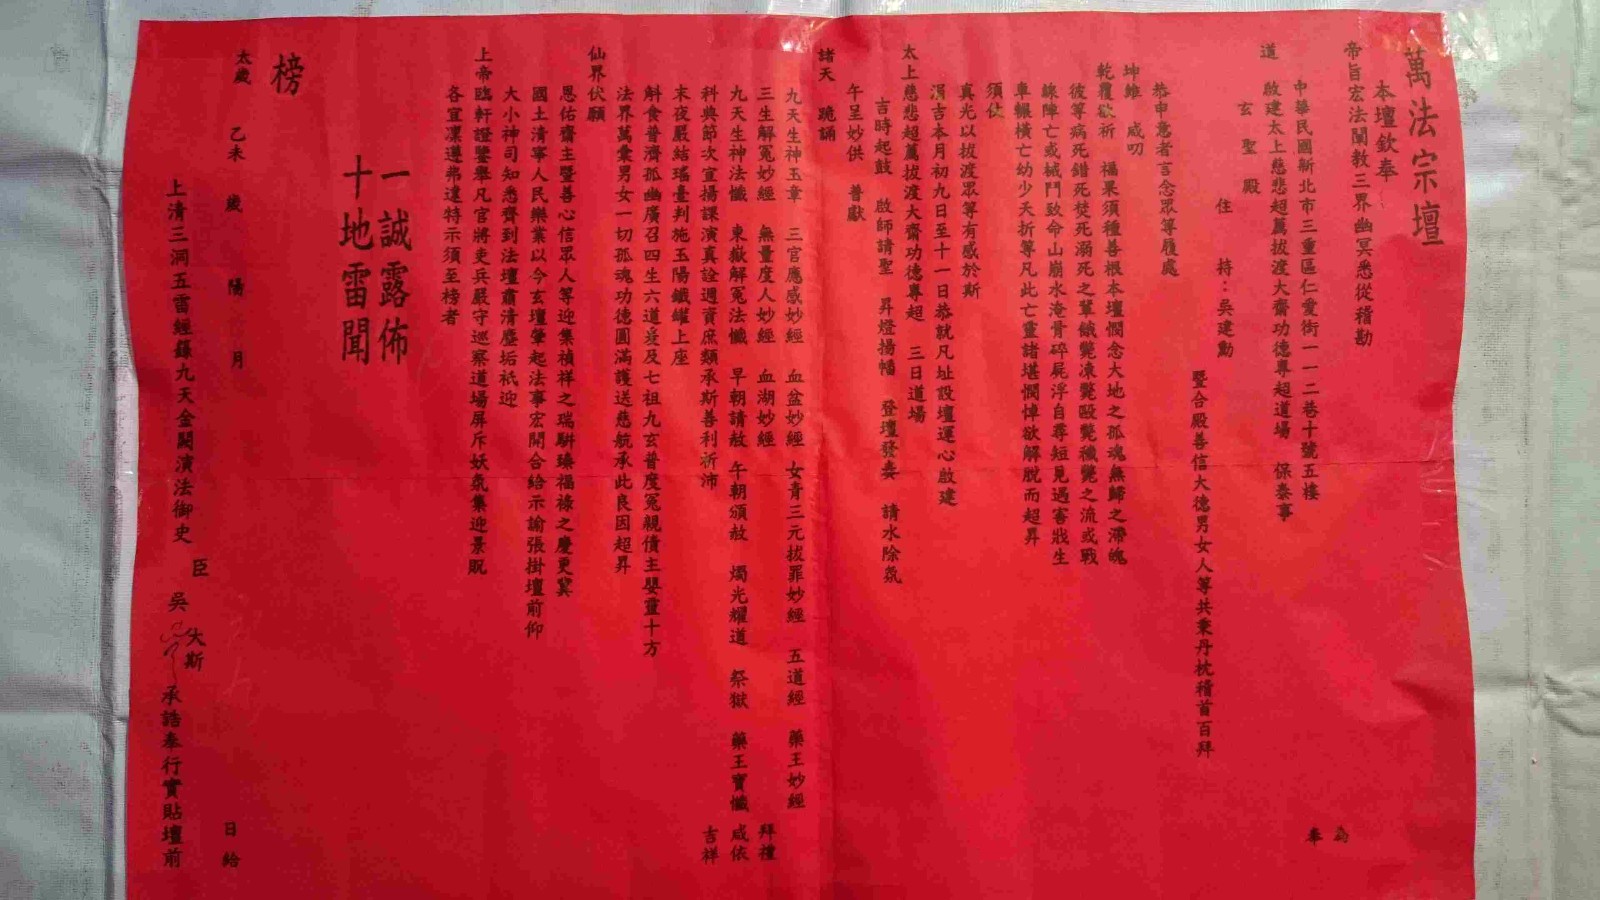 萬法宗壇
本壇欽奉
帝旨宏法闡教三界幽冥悉從稽勘
為
中華民國新北市三重區仁愛街一一二巷十號五樓
奉
道 啟建太上慈悲超薦拔渡大齋功德專超道場 保泰事
玄聖殿
住持：吳建勳
暨合殿善信大德男女人等共秉丹忱稽首百拜
恭申意者言念眾等履處
坤維 咸叨
乾覆欲祈 福果須種善根本壇憫念大地之孤魂無歸之滯魄
彼等病死錯死焚死溺死之輩餓斃凍斃毆斃殲斃之流或戰
線陣亡或械鬥致命山崩水淹骨碎屍浮自尋短見遇害戕生
車輾橫亡幼少夭折等凡此亡靈諸堪憫悼欲解脫而超昇
須仗
真光以拔渡眾等有感於斯
涓吉本月初九日至十一日恭就凡址設壇運心啟建
太上慈悲超薦拔渡大齋功德專超 三日道場
吉時起鼓 啟師請聖 昇燈揚幡 登壇發奏 請水除氛
午呈妙供 普獻
諸天 跪誦
九天生神玉章 三官應感妙經 血盆妙經 女青三元拔罪妙經 五道經 藥王妙經
三生解冤妙經 無量度人妙經 血湖妙經 拜禮
九天生神法懺 東嶽解冤法懺 早朝請赦 午朝頒赦 燭光耀道 祭獄 藥王寶懺 咸依
科典節次宣揚課演真詮週資庶類承斯善利祈沛 吉祥
末夜嚴結瑤臺判施玉陽鐵罐上座
斛食普濟孤幽廣召四生六道爰及七祖九玄普度冤親債主嬰靈十方
法界萬彙男女一切孤魂功德圓滿護送慈航承此良因超昇
仙界伏願
恩佑齋主暨善心信眾人等迎集禎祥之瑞駢臻福祿之慶更冀
國土清寧人民樂業以今玄壇肇起法事宏開合給示諭張掛壇前仰
大小神司知悉齊到法壇肅清塵垢祇迎
上帝臨軒證鑒舉凡官將吏兵嚴守巡察道場屏斥妖氛集迎景貺
各宜凜遵弗違特示須至榜者
一誠露佈
十地雷聞
榜
太歲 乙未 歲 陽 月 日給
上清三洞五雷經籙九天金闕演法御史 臣 吳 大斯 承誥奉行實貼壇前